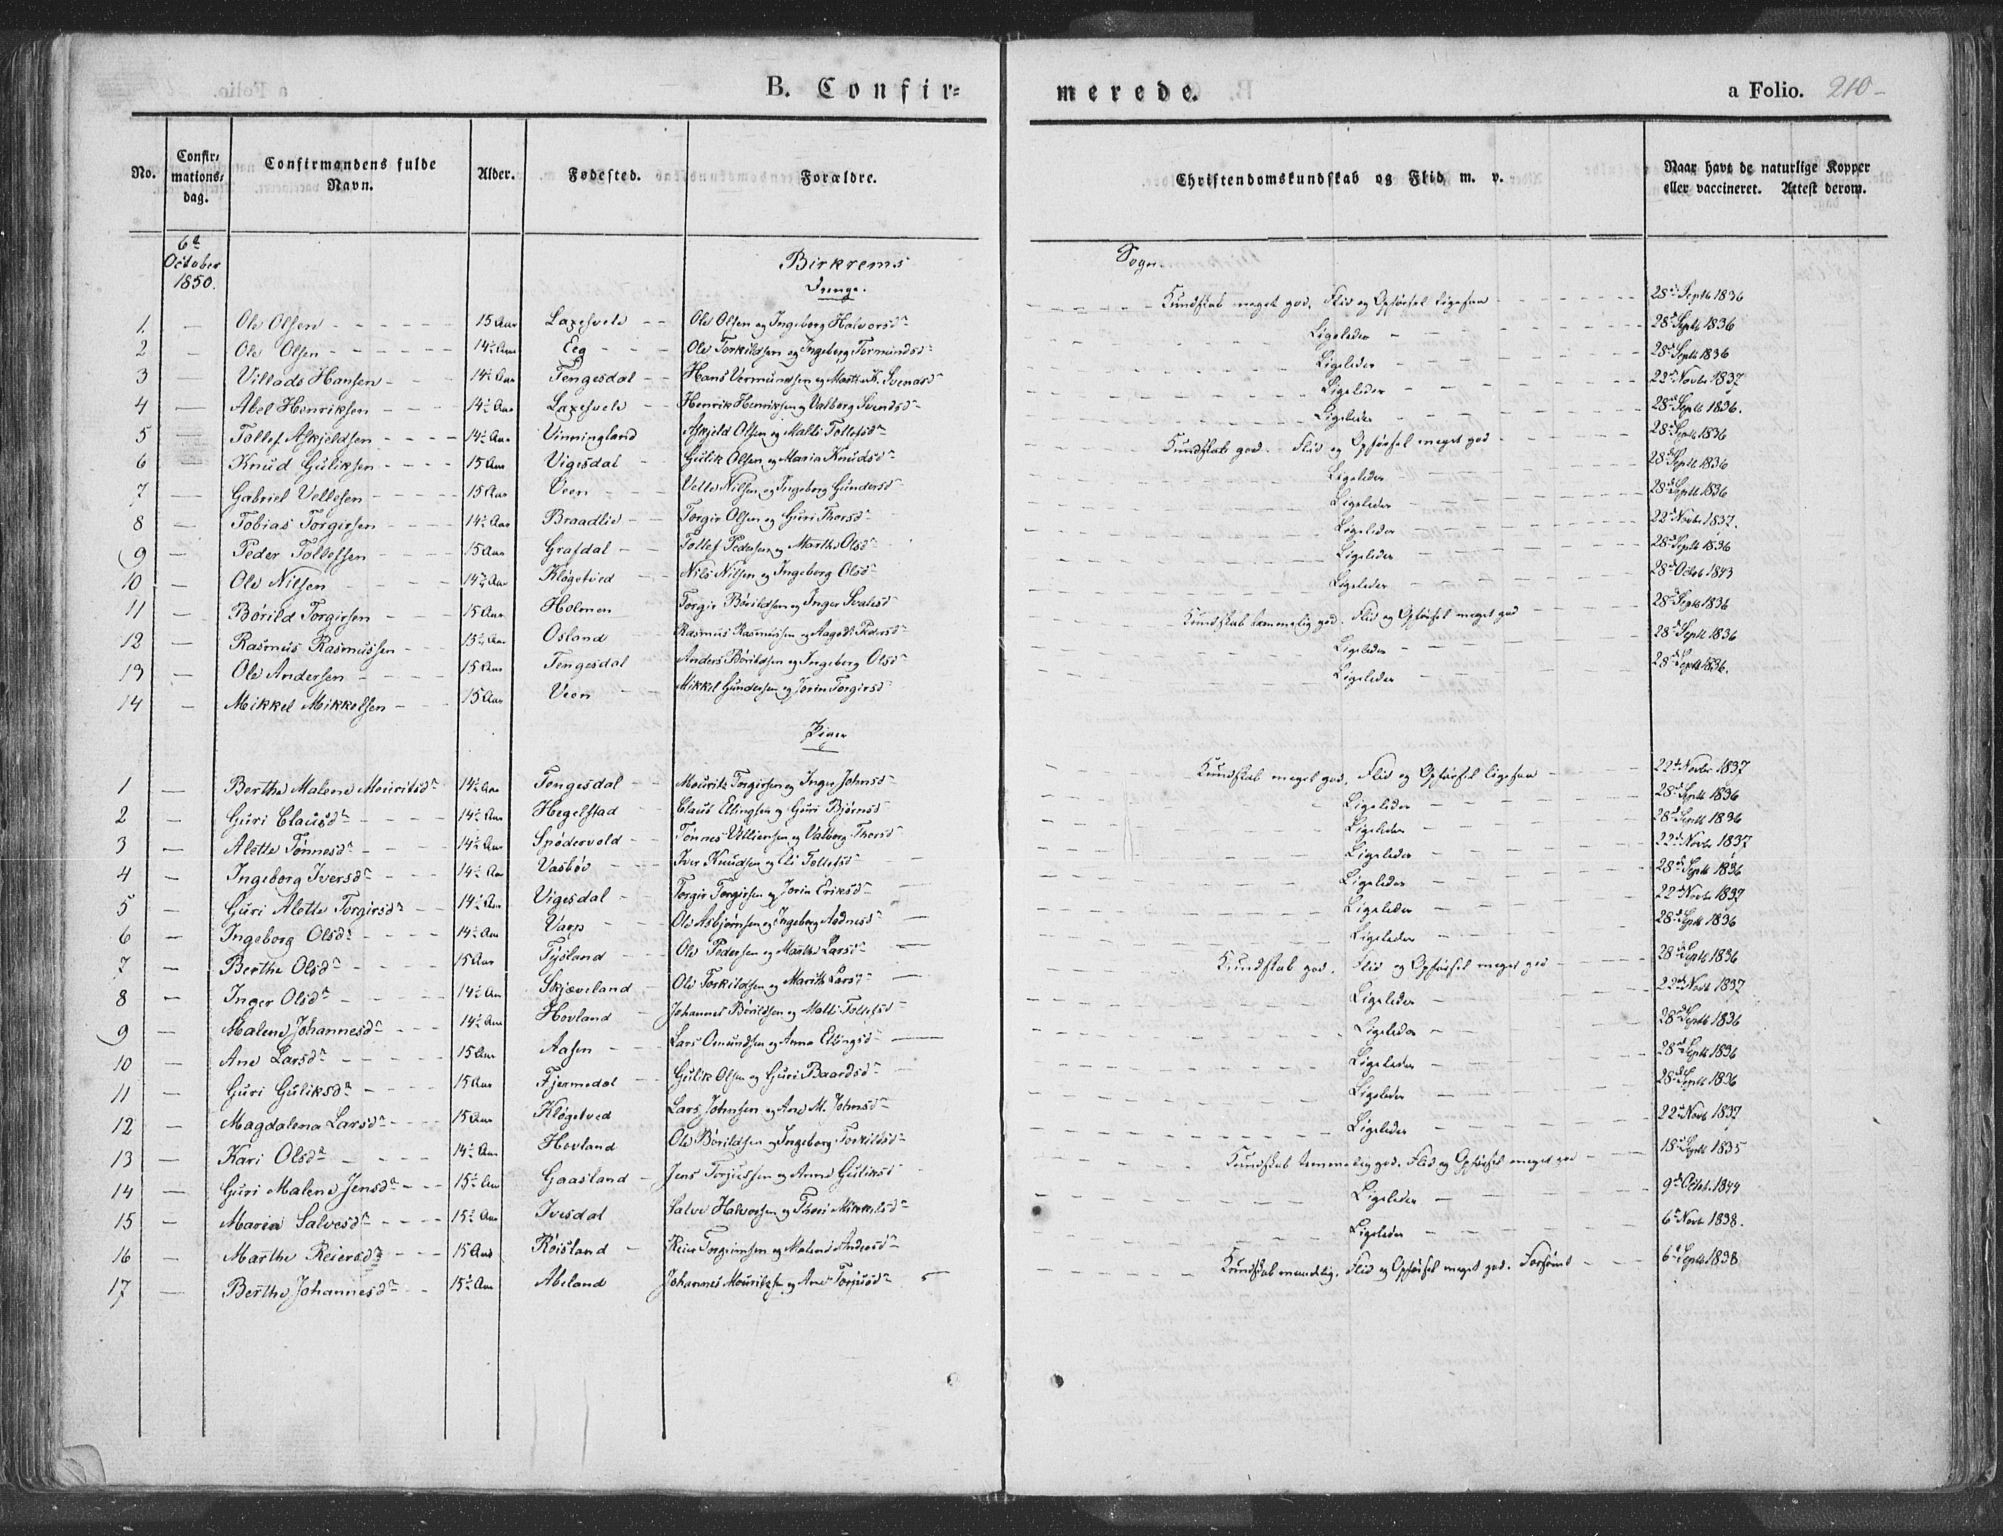 B. Confir=
merede.
a Folio. 210
No. Confir- mations- dag. Confirmandens fulde Navn. Alder. Fødested. Forældre. Christendomskundskab og Flid m. v. Naar havt de naturlige Kopper eller vaccineret. Attest derom.
6te October 1850.
Birkrems Sogn.
Drenge.
1. — Ole Olsen 15 Aar Laxesvele Ole Olsen og Ingeborg Halvorsd. Kundskab meget god. Flid og Opførsel ligesaa 28de Septb 1836
2 — Ole Olsen 14½ Aar Eeg Ole Torkildsen og Ingeborg Tormundsd. Ligeledes 28de Septb 1836
3 — Villads Hansen 14½ Aar Tengesdal Hans Vermundsen og Marthe K. Svendsd. Ligeledes 28de Septb 1836
4 — Abel Henriksen 14½ Aar Laxesvele Henrik Henriksen og Valborg Svendsd. Ligeledes 22de Novbr 1837
5 — Tollef Askjeldsen 14½ Aar Vinningland Askjeld Olsen og Malli Tollefsd. Ligeledes 28de Septb 1836.
6 — Knud Guliksen 15 Aar Vigesdal Gulik Olsen og Maria Knudsd. Kundskab god. Flid og Opførsel meget god 28de Septb 1836
7 — Gabriel Vellesen 15 Aar Veen Velle Nilsen og Ingeborg Gundersd. Ligeledes 28de Septb 1836
8 — Tobias Torgirsen 14½ Aar Braadlie Torgir Olsen og Guri Thorsd. Ligeledes 28de Septb 1836
9 — Peder Tollefsen 15 Aar Grafdal Tollef Pedersen og Marthe Olsd. Ligeledes 22de Novbr 1837.
10 — Ole Nilsen 14¾ Aar Kløgetved Nils Nilsen og Ingeborg Olsd. Ligeledes 28de Septb 1836
11 — Børild Torgirsen 15 Aar Holmen Torgir Børildsen og Inger Svalesd. Ligeledes 28de Octob 1843
12 — Rasmus Rasmussen 15½ Aar Osland Rasmus Rasmussen og Aagede Pedersd. Kundskab temmelig god. Flid og Opførsel meget god 28de Septb 1836
13 — Ole Andersen 15 Aar Tengesdal Anders Børildsen og Ingeborg Olsd. Ligeledes 28de Septb 1836
14 — Mikkel Mikkelsen 15 Aar Veen Mikkel Gundersen og Jorin Torgirsd. Ligeledes 28de Septb 1836.
Piger
1 — Berthe Malene Mouritsd. 14½ Aar Tengesdal Mouritz Torgirsen og Inger Johnsd. Kundskab meget god. Flid og Opførsel ligesaa 22de Novbr 1837
2 — Guri Clausd. 14½ Aar Hegelstad Claus Ellingsen og Guri Bjørnsd. Ligeledes 28de Septb 1836
3 — Alette Tønnesd. 14½ Aar Spødervold Tønnes Villiensen og Valborg Thorsd. Ligeledes 28de Septb 1836
4 — Ingeborg Iversd. 14½ Aar Vasbøe Iver Knudsen og Eli Tollefsd. Ligeledes 22de Novbr 1837
5 — Guri Alette Torgirsd. 14½ Aar Vigesdal Torgir Torgirsen og Jorin Eriksd. Ligeledes 28de Septb 1836
6 — Ingeborg Olsd. 14½ Aar Varp Ole Asbjørnsen og Ingeborg Aadnesd. Ligeledes 22de Novbr 1837
7 — Berthe Olsd. 15 Aar Fysland Ole Pedersen og Marthe Larsd. Ligeledes 28de Septb 1836
8 — Inger Olsd. 14½ Aar Skjæveland Ole Torkildsen og Marith Larsd. Kundskab god. Flid og Opførsel meget god 28de Septb 1836
9 — Malene Johannesd. 14½ Aar Hovland Johannes Børildsen og Malli Tollefsd. Ligeledes 22de Novb 1837
10 — Ane Larsd. 15 Aar Aasen Lars Omundsen og Anna Ellingsd. Ligeledes 28de Septb 1836
11 — Guri Guliksd. 15 Aar Fjermedal Gulik Olsen og Guri Baardsd. Ligeledes 28de Septb 1836
12 — Magdalena Larsd. 15 Aar Kløgetved Lars Johnsen og Ane M. Johnsd. Ligeledes 28de Septb 1836
13 — Kari Olsd. 14½ Aar Hovland Ole Børildsen og Ingeborg Torkildsd. Ligeledes 22de Novb 1837
14 — Guri Malene Jensd. 15½ Aar Gaasland Jens Torjussen og Anne Guliksd. Kundskab temmelig god. Flid og Opførsel meget god 18de Septb 1835
15 — Maria Salvesd. 15½ Aar Ivesdal Salve Halvorsen og Thori Mikkelsd. Ligeledes 9de Octob. 1844
16 — Marthe Reiersd. 15 Aar Røisland Reier Torgrimsen og Malene Andersd. Ligeledes 6te Novb 1838.
17 — Berthe Johannesd. 15½ Aar Abeland Johannes Mouritzen og Ane Torjusd. Kundskab maadelig. Flid og Opførsel meget god. Forsømt 6te Septb 1838